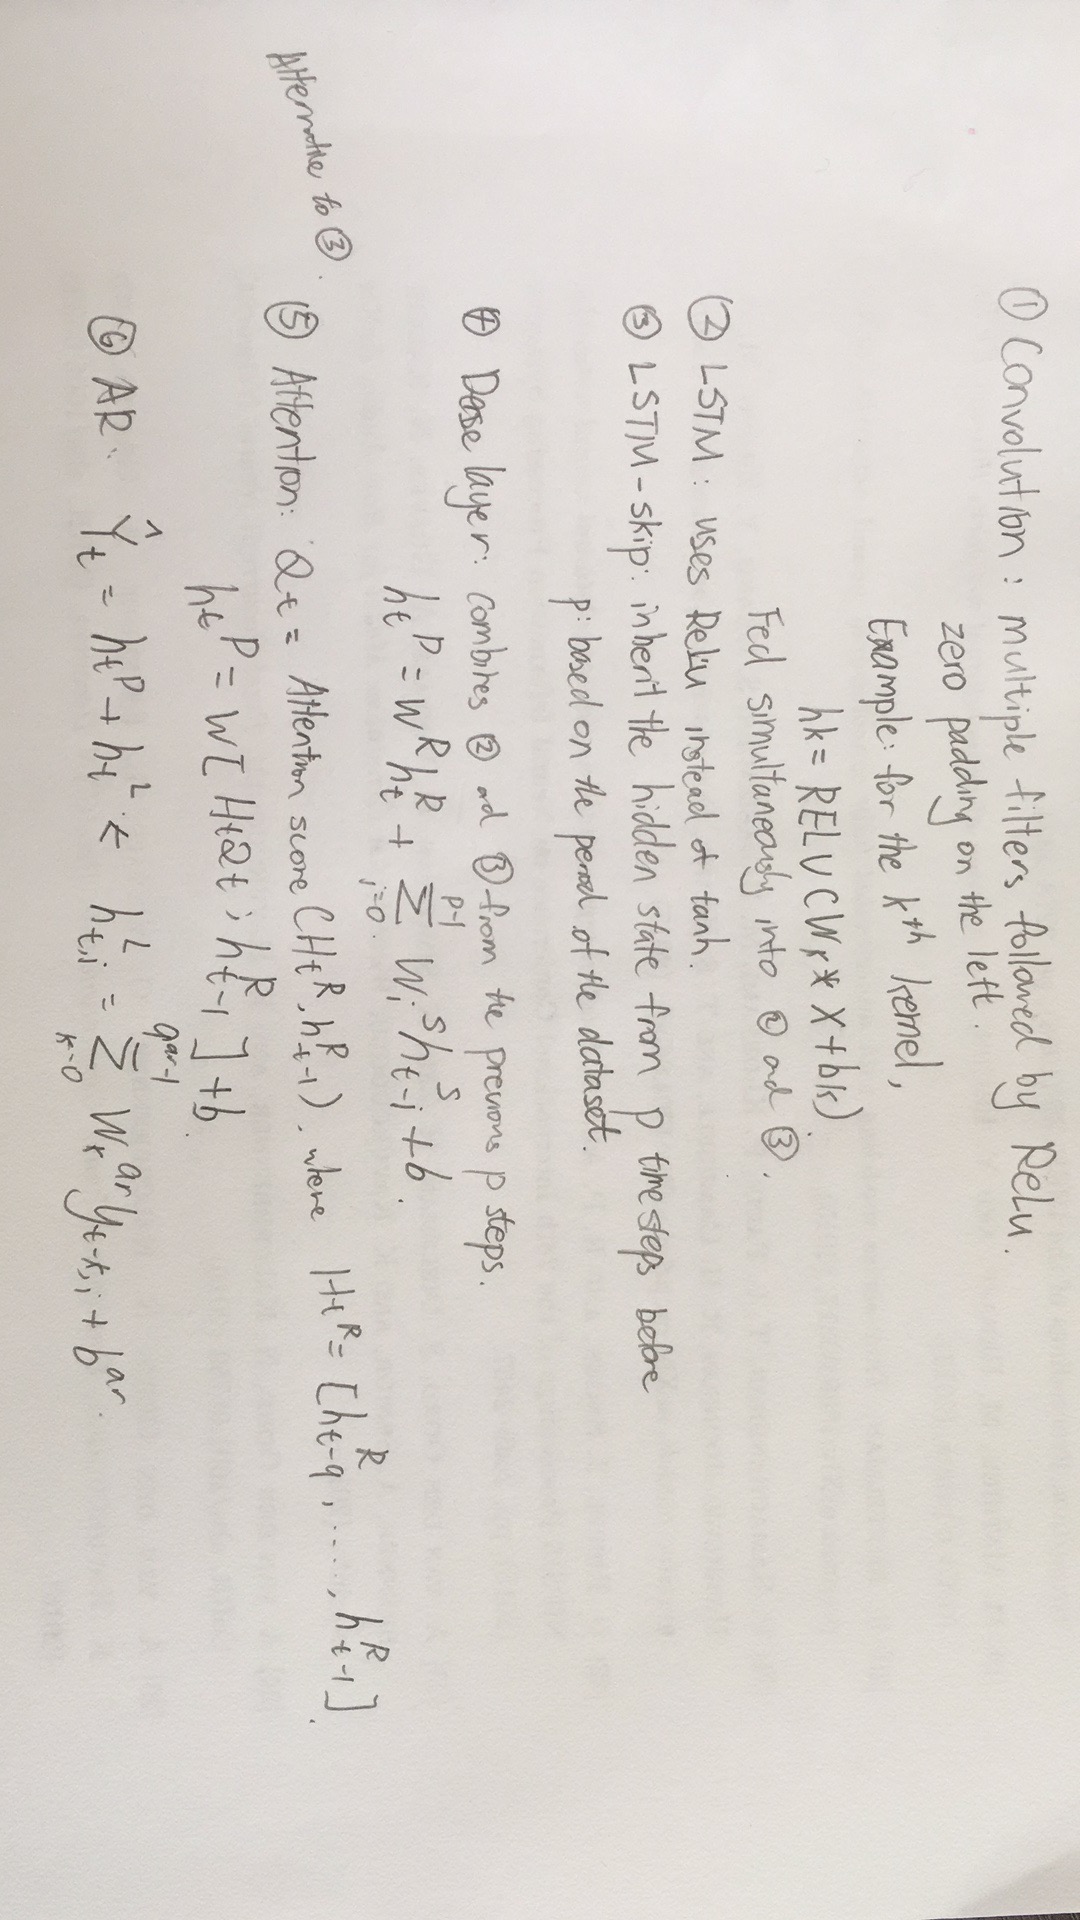 ① Convolution: multiple filters followed by ReLu.
zero padding on the left.
Example: for the kth kernel,
hk = RELU(Wk * X + bk)
Fed simultaneously into ② and ③.
② LSTM: uses ReLu instead of tanh.
③ LSTM-skip: inherit the hidden state from p timesteps before
p: based on the period of the dataset.
④ Dense layer: combines ② and ③ from the previous p steps.
h_t^D = W^R h_t^R + Σ_{i=0}^{p-1} W_i^S h_{t-i}^S + b.
Alternative to ③.
⑤ Attention: α_t = Attention score (H_t^R, h_{t-1}^R), where H_t^R = [h_{t-q}^R, ....., h_{t-1}^R].
h_t^D = W[H_t α_t; h_{t-1}^R] + b.
⑥ AR. Ŷ_t = h_t^D + h_t^L ← h_{t,i}^L = Σ_{k=0}^{q^{ar}-1} W_k^{ar} y_{t-k,i} + b^{ar}.